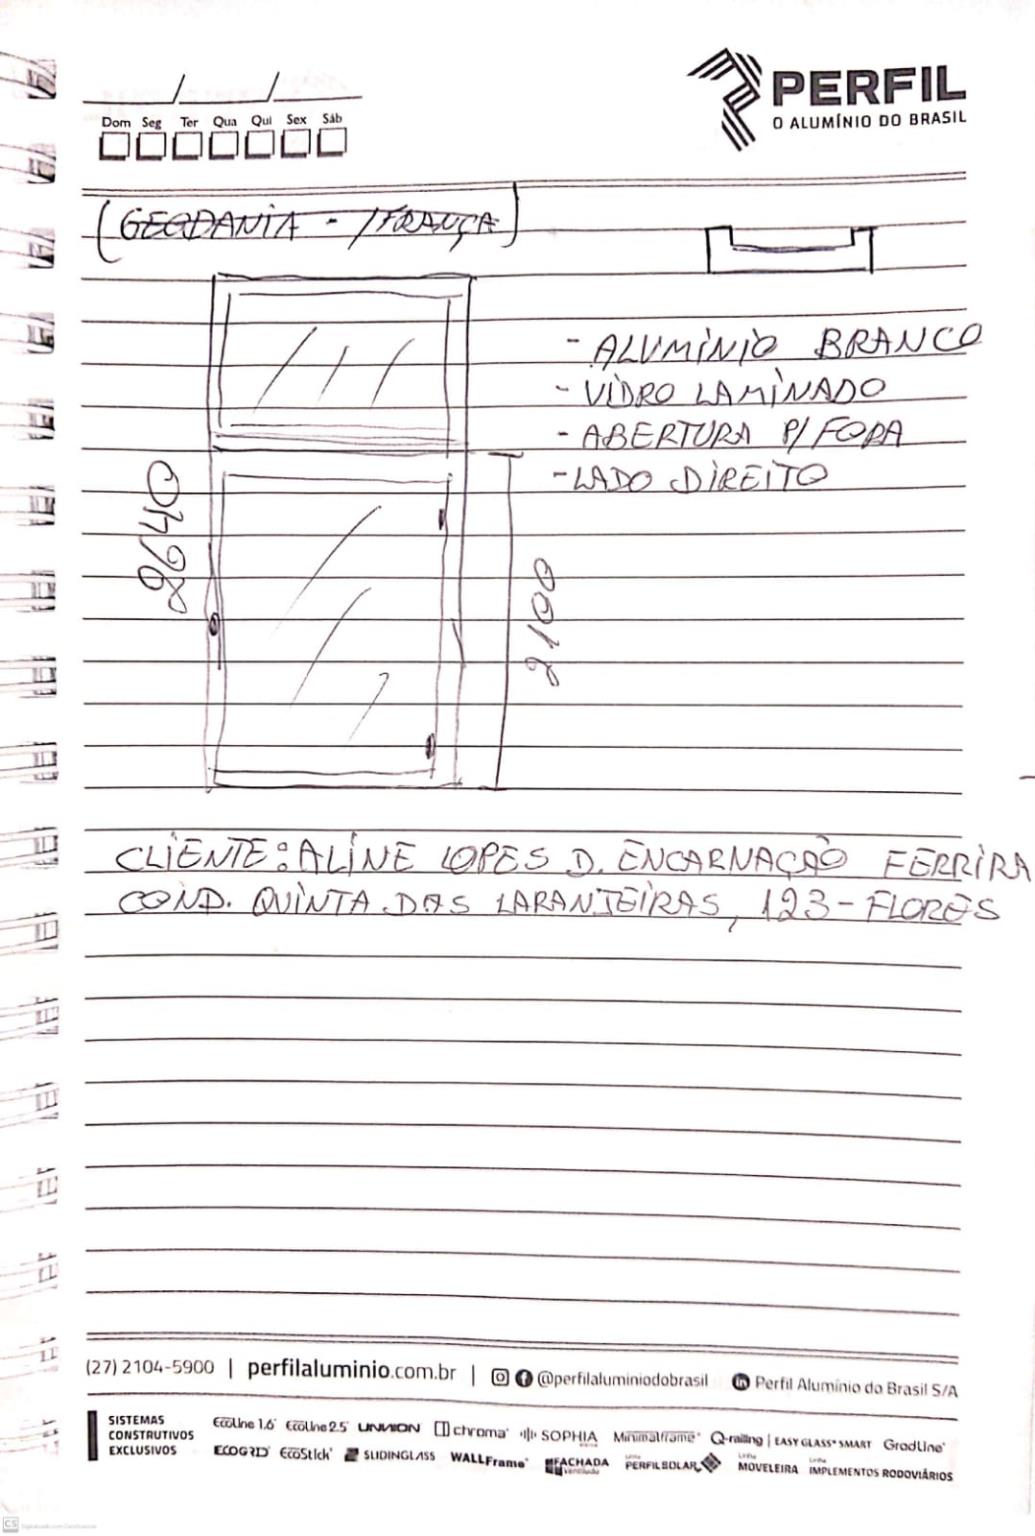 PERFIL
O ALUMÍNIO DO BRASIL
Dom Seg Ter Qua Qui Sex Sáb
(GEODANIA - /FRANÇA)
- ALUMÍNIO BRANCO
- VIDRO LAMINADO
- ABERTURA P/ FORA
- LADO DIREITO
2640
2100
CLIENTE: ALINE LOPES D. ENCARNAÇÃO FERRIRA
COND. QUINTA DAS LARANJEIRAS, 123 - FLORES
(27) 2104-5900 | perfilaluminio.com.br | @perfilaluminiodobrasil Perfil Alumínio do Brasil S/A
SISTEMAS CONSTRUTIVOS EXCLUSIVOS
EcoLine 1.6 EcoLine 2.5 UNNION chroma SOPHIA Minimalframe Q-railing | EASY GLASS SMART GradLine
ECOGRID EcoStick SLIDINGLASS WALLFrame FACHADA ventilada Linha PERFILSOLAR Linha MOVELEIRA Linha IMPLEMENTOS RODOVIÁRIOS
CS